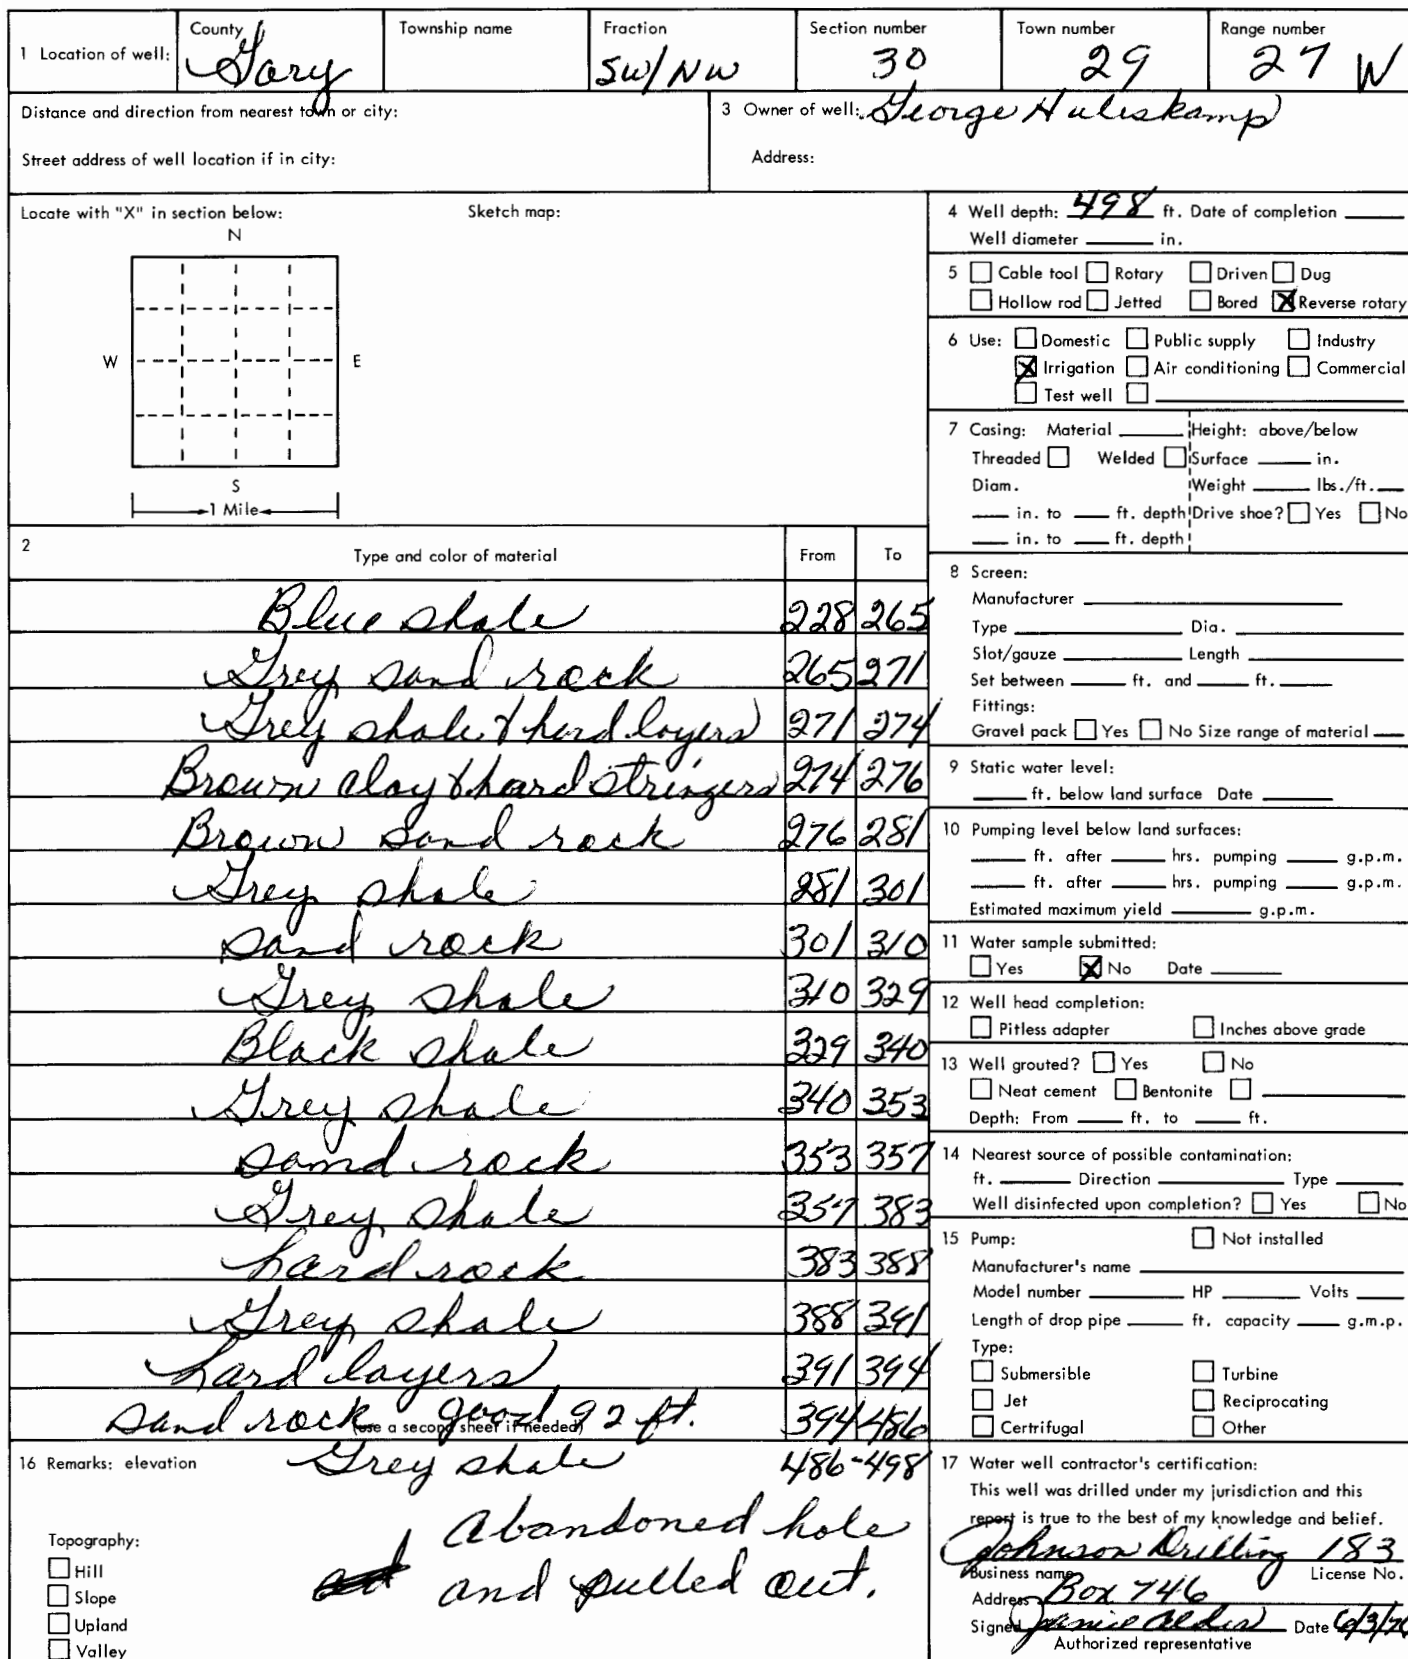 1 Location of well: County Gary Township name Fraction SW/NW Section number 30 Town number 29 Range number 27 W
Distance and direction from nearest town or city:
Street address of well location if in city:
3 Owner of well: George Huliskamp
Address:
Locate with "X" in section below: Sketch map:
N
W E
S
1 Mile
2 Type and color of material From To
Blue shale 228 265
Grey sand rock 265 271
Grey shale & hard layers 271 274
Brown clay & hard stringers 274 276
Brown sand rock 276 281
Grey shale 281 301
sand rock 301 310
Grey shale 310 329
Black shale 329 340
Grey shale 340 353
sand rock 353 357
Grey shale 357 383
hard rock 383 388
Grey shale 388 391
hard layers 391 394
sand rock good 92 ft. 394 486
(use a second sheet if needed)
16 Remarks: elevation Grey shale 486-498
Abandoned hole
and pulled out.
Topography:
Hill
Slope
Upland
Valley
4 Well depth: 498 ft. Date of completion
Well diameter in.
5 Cable tool Rotary Driven Dug
Hollow rod Jetted Bored X Reverse rotary
6 Use: Domestic Public supply Industry
X Irrigation Air conditioning Commercial
Test well
7 Casing: Material Height: above/below
Threaded Welded Surface in.
Diam. Weight lbs./ft.
in. to ft. depth Drive shoe? Yes No
in. to ft. depth
8 Screen:
Manufacturer
Type Dia.
Slot/gauze Length
Set between ft. and ft.
Fittings:
Gravel pack Yes No Size range of material
9 Static water level:
ft. below land surface Date
10 Pumping level below land surfaces:
ft. after hrs. pumping g.p.m.
ft. after hrs. pumping g.p.m.
Estimated maximum yield g.p.m.
11 Water sample submitted:
Yes X No Date
12 Well head completion:
Pitless adapter Inches above grade
13 Well grouted? Yes No
Neat cement Bentonite
Depth: From ft. to ft.
14 Nearest source of possible contamination:
ft. Direction Type
Well disinfected upon completion? Yes No
15 Pump: Not installed
Manufacturer's name
Model number HP Volts
Length of drop pipe ft. capacity g.m.p.
Type:
Submersible Turbine
Jet Reciprocating
Certrifugal Other
17 Water well contractor's certification:
This well was drilled under my jurisdiction and this
report is true to the best of my knowledge and belief.
Johnson Drilling 183
Business name License No.
Address Box 746
Signed Janice Alder Date 6/3/76
Authorized representative